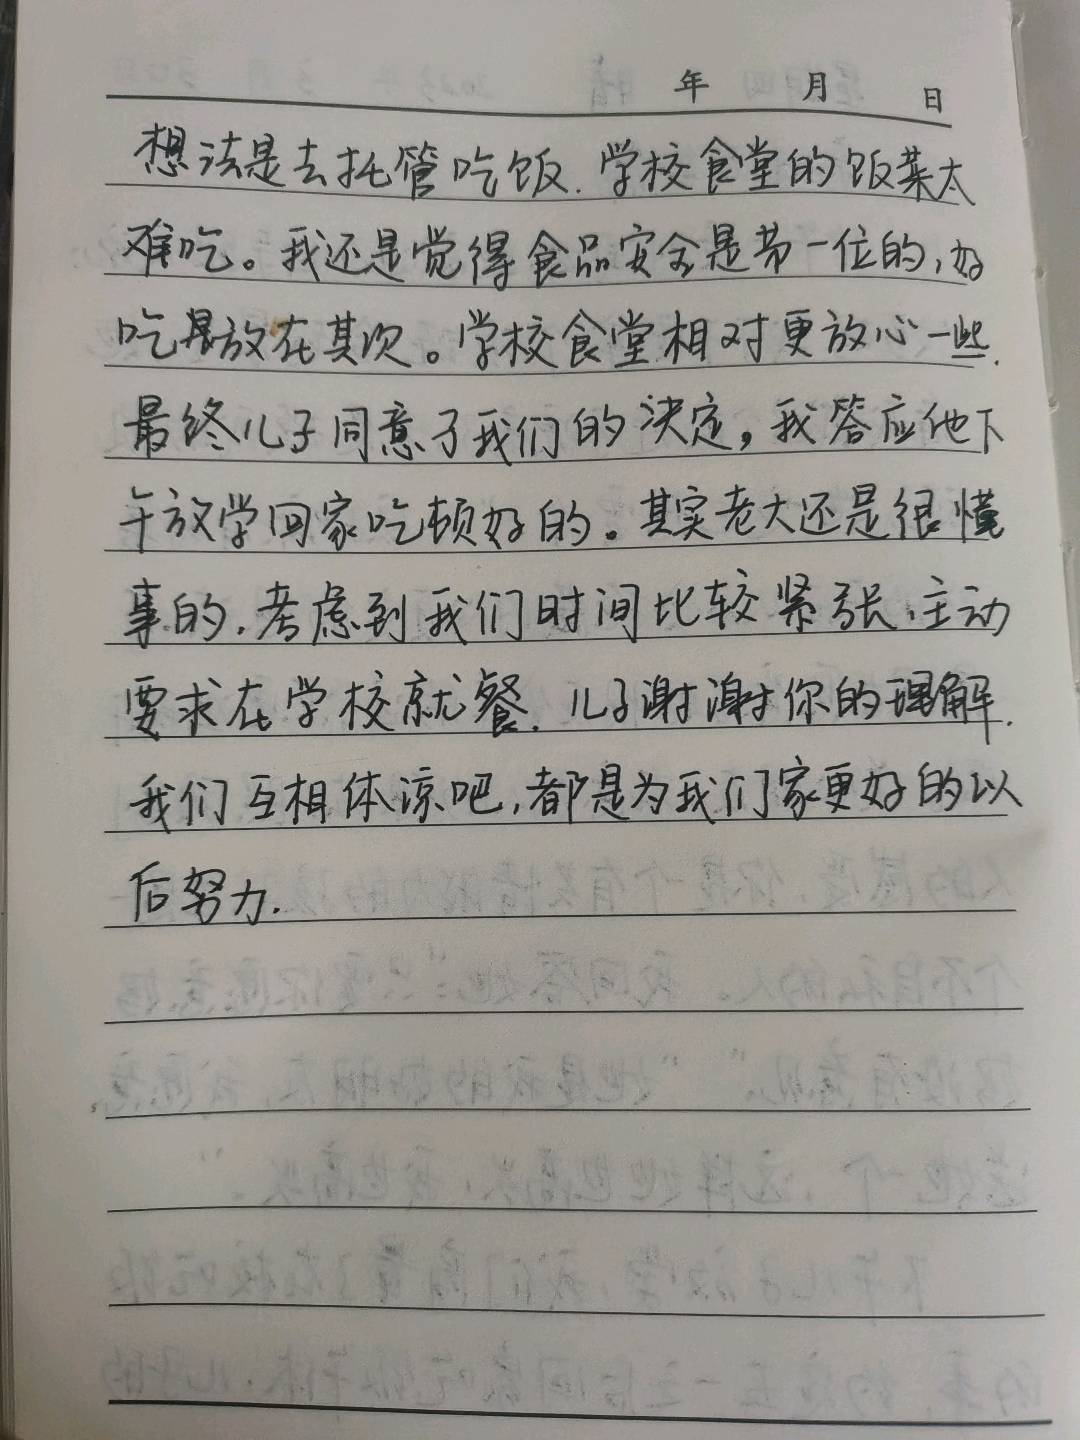 年 月 日
想法是去托管吃饭.学校食堂的饭菜太
难吃。我还是觉得食品安全是第一位的,好
吃是放在其次。学校食堂相对更放心一些.
最终儿子同意了我们的决定,我答应他下
午放学回家吃顿好的。其实老大还是很懂
事的.考虑到我们时间比较紧张,主动
要求在学校就餐.儿子谢谢你的理解.
我们互相体凉吧,都是为我们家更好的以
后努力.